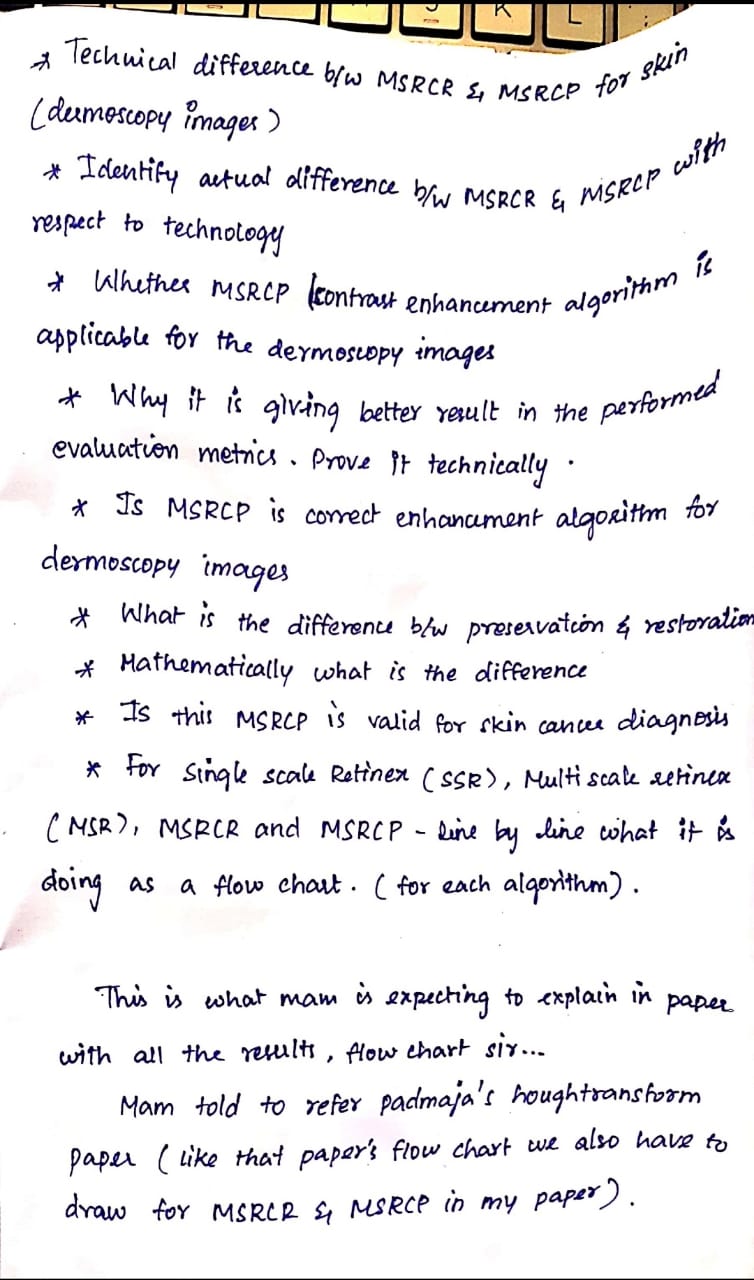 * Technical difference b/w MSRCR & MSRCP for skin
(dermoscopy images)
* Identify actual difference b/w MSRCR & MSRCP with
respect to technology
* Whether MSRCP contrast enhancement algorithm is
applicable for the dermoscopy images
* Why it is giving better result in the performed
evaluation metrics. Prove it technically.
* Is MSRCP is correct enhancement algorithm for
dermoscopy images
* What is the difference b/w preservation & restoration
* Mathematically what is the difference
* Is this MSRCP is valid for skin cancer diagnosis
* For Single scale Retinex (SSR), Multi scale retinex
(MSR), MSRCR and MSRCP - line by line what it is
doing as a flow chart. (for each algorithm).
This is what mam is expecting to explain in paper
with all the results, flow chart sir...
Mam told to refer padmaja's houghtransform
paper (like that paper's flow chart we also have to
draw for MSRCR & MSRCP in my paper).
K
L